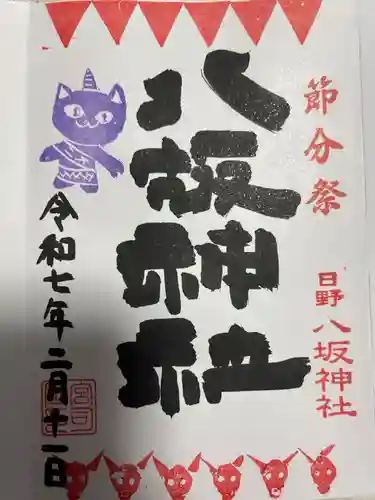 節分祭
日野 八坂神社
八坂神社
令和七年二月十一日